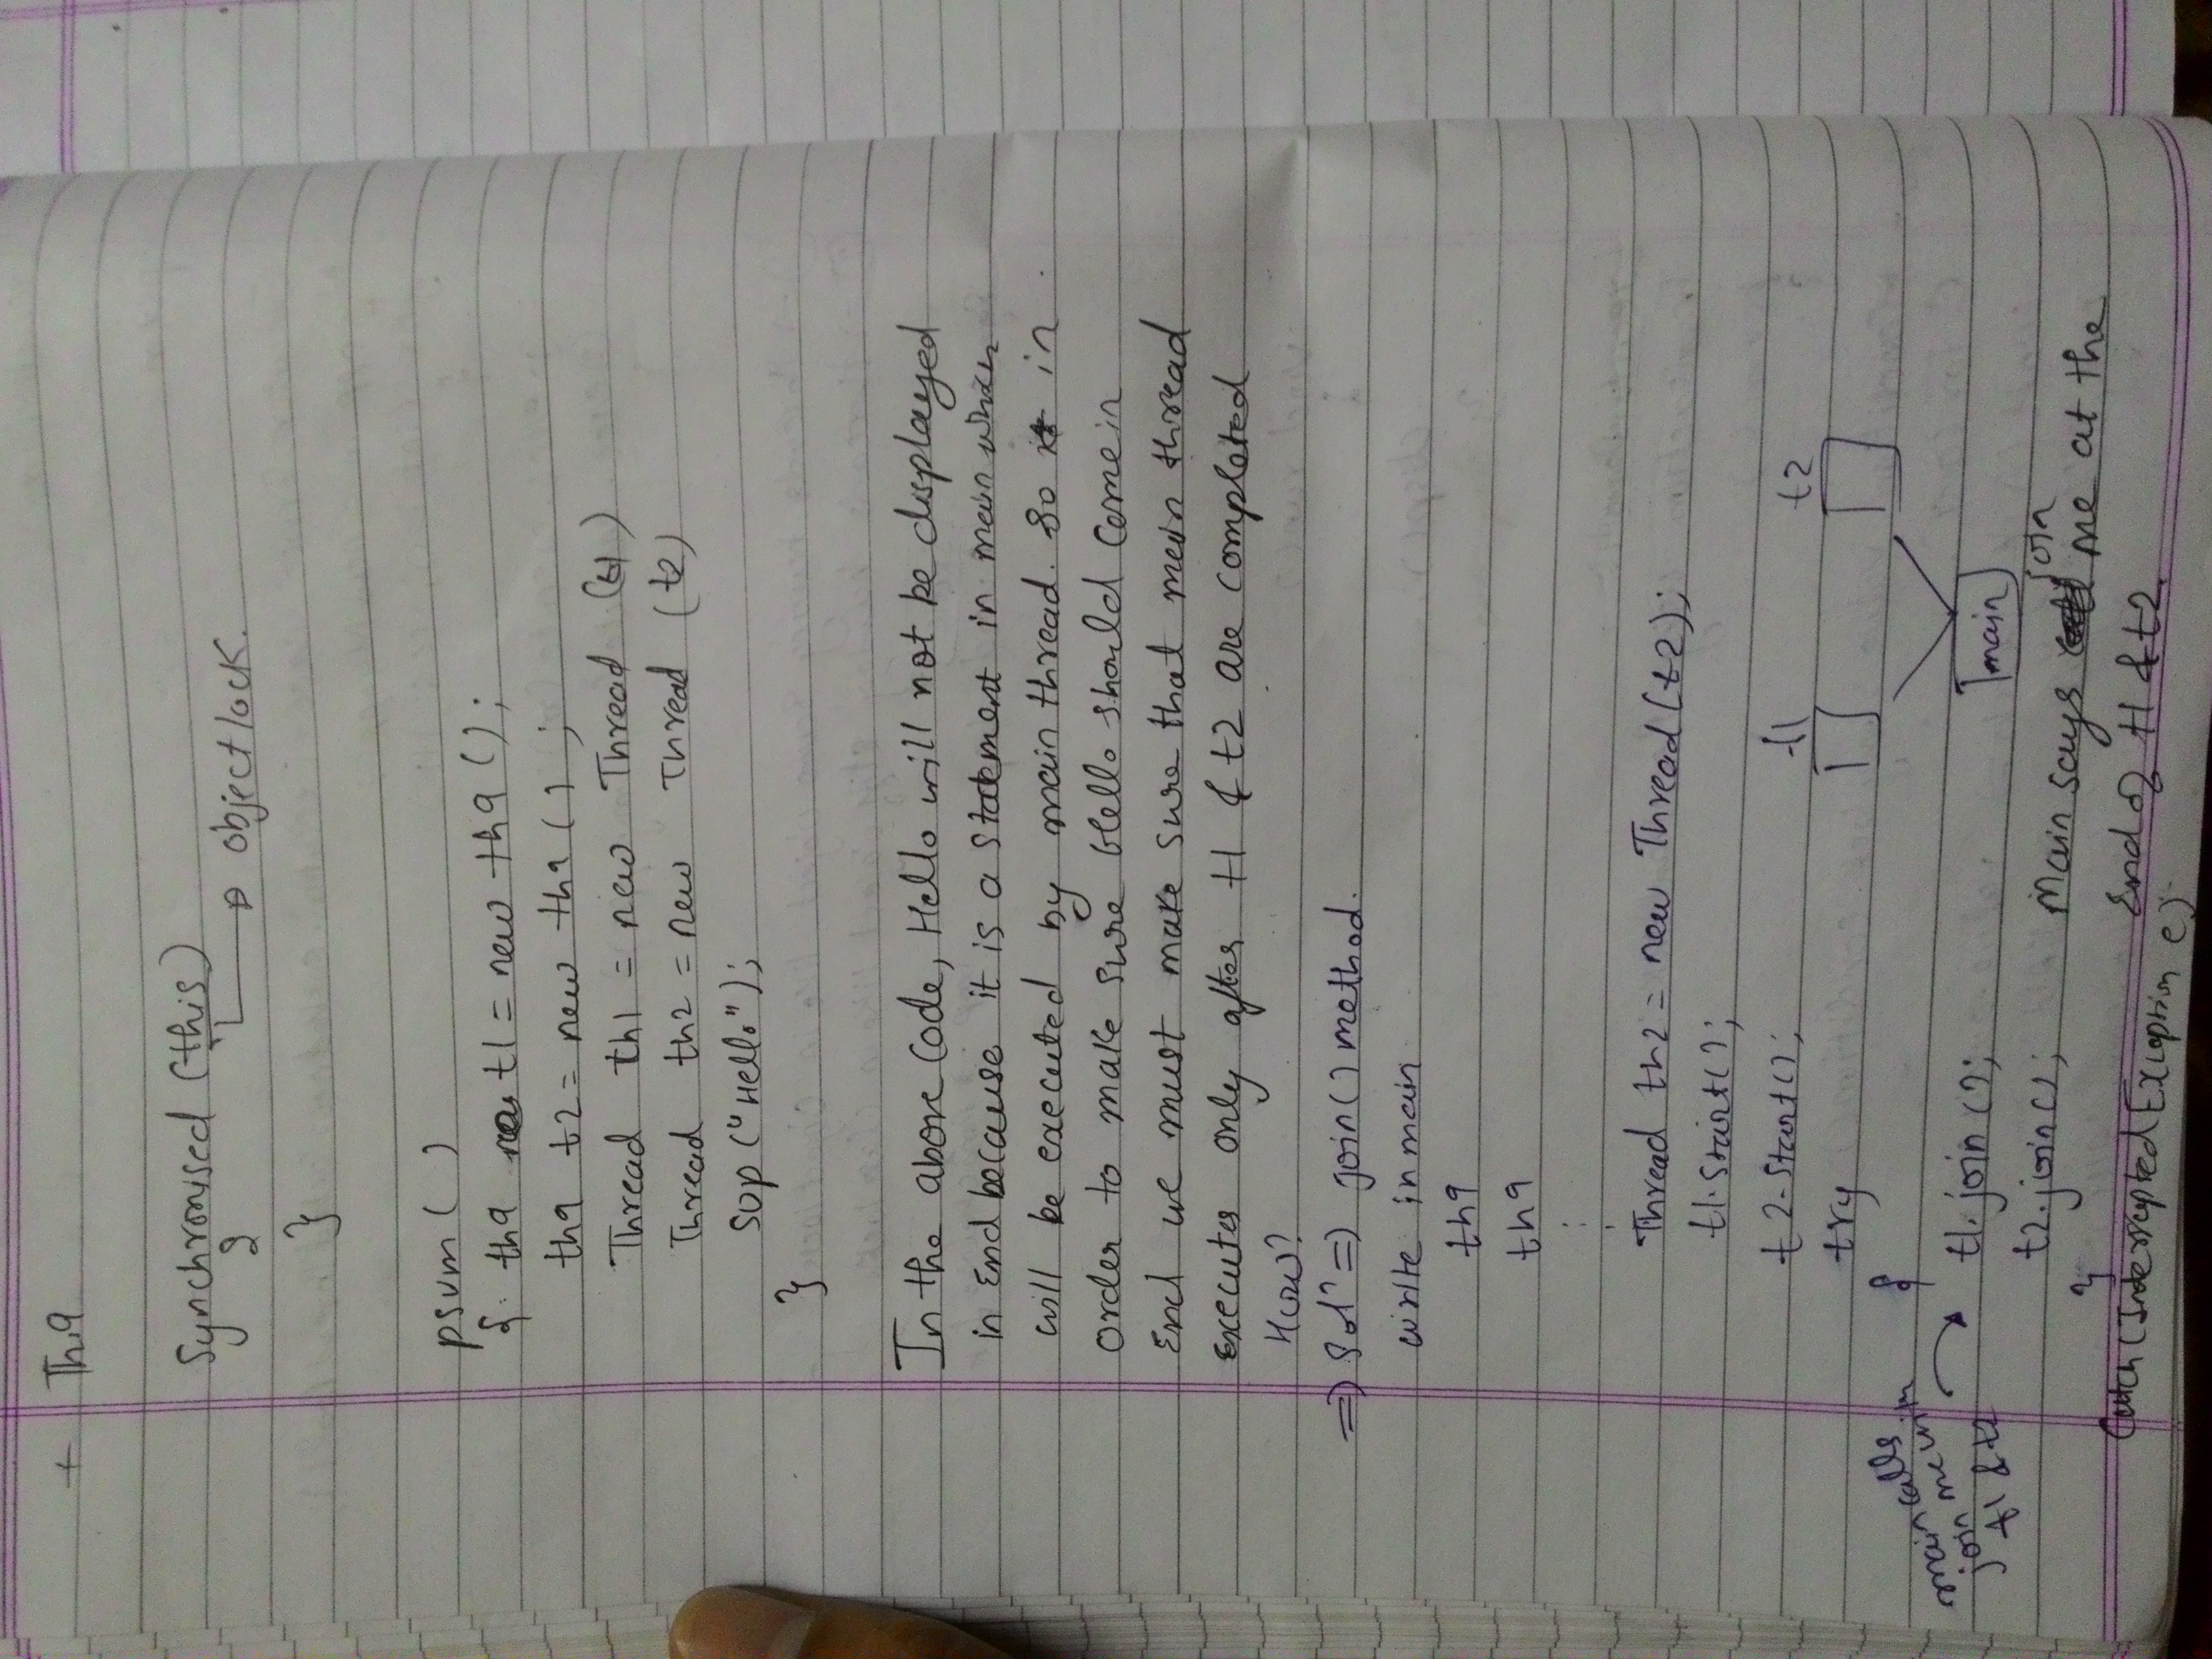 + Th9
Synchronised (this)
{ → object lock.
}
psvm ( )
{ th9 t1 = new th9 ();
th9 t2 = new th9 ( ) ;
Thread th1 = new Thread (t1)
Thread th2 = new Thread (t2)
sop ("Hello");
}
In the above Code, Hello will not be displayed
in End because it is a Statement in main which
will be executed by main thread. So in
order to make sure Hello should come in
End we must make sure that main thread
executes only after t1 & t2 are completed
How?
⇒ Solⁿ ⇒ join() method.
write in main
th9
th9
⋮
Thread th2 = new Thread (t2);
t1.Start();
t2.Start();
t1 t2
try
{
main calls
join me with
t1 & t2
t1.join ();
main
t2.join();
Main says join me at the
End of t1 & t2.
}
Catch (Interrupted Exception e)